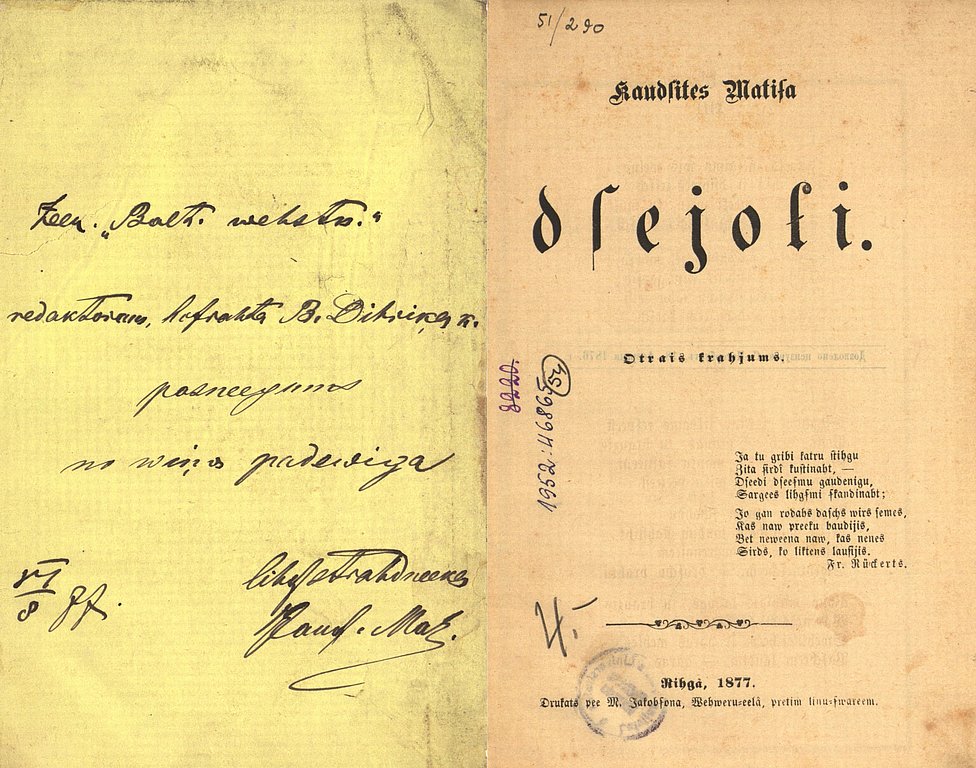 Zeen. „Balt. wehstn."
redaktoram, B. Dihriķa k.
pasneegums
no wiņa padewiga
lihdsstrahdneeka
Kauds. Mat.
VI
8 77.
51/290
Kaudſites Matiſa
dſejoļi.
Otrais krahjums.
8220.
1952:46865
54
Ja tu gribi katru ſtihgu
Zita ſirdî kuſtinaht, —
Dſeedi dſeeſmu gaudenigu,
Sargees lihgſmi ſkandinaht;
Jo gan rodahs daſchs wirs ſemes,
Kas naw preeku baudijis,
Bet neweena naw, kas nenes
Sirds, ko liktens lauſijis.
Fr. Rückerts.
Rihgâ, 1877.
Drukats pee M. Jakobſona, Wehweru-eelâ, pretim linu-ſwareem.